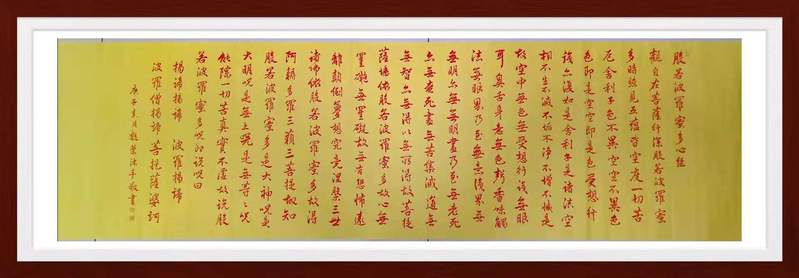 般若波羅蜜多心經
觀自在菩薩行深般若波羅蜜
多時照見五蘊皆空度一切苦
厄舍利子色不異空空不異色
色即是空空即是色受想行
識亦復如是舍利子是諸法空
相不生不滅不垢不淨不增不減是
故空中無色無受想行識無眼
耳鼻舌身意無色聲香味觸
法無眼界乃至無意識界無
無明亦無無明盡乃至無老死
亦無老死盡無苦集滅道
無智亦無得以無所得故菩提
薩埵依般若波羅蜜多故心無
罣礙無罣礙故無有恐怖遠
離顛倒夢想究竟涅槃三世
諸佛依般若波羅蜜多故得
阿耨多羅三藐三菩提故知
般若波羅蜜多是大神咒是
大明咒是無上咒是無等等咒
能除一切苦真實不虛故說般
若波羅蜜多咒即說咒曰
揭諦揭諦 波羅揭諦
波羅僧揭諦 菩提薩婆訶
庚子 敬書